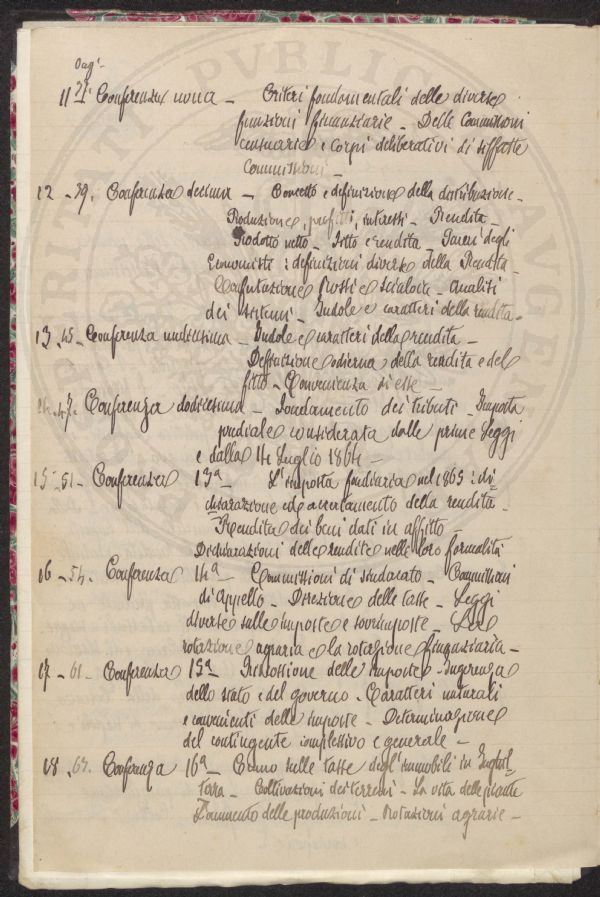 Pag.
11 - 37. Conferenza nona - Criteri fondamentali delle diverse
funzioni finanziarie - Delle Commissioni
censuarie e corpi deliberativi di siffatte
Commissioni -
12 - 39. Conferenza decima - Concetto e definizione della distribuzione -
Produzione, profitti, interessi - Rendita -
Prodotto netto - Fitto e rendita - Pareri degli
Economisti : definizioni diverse della Rendita -
Confutazione Rossi e Scialoia - Analisi
dei sistemi - Indole e caratteri della rendita -
13 - 45 - Conferenza undecisima - Indole e caratteri della rendita -
Deffinizione odierna della rendita e del
fitto - Convenienza di esse -
14 - 47. Conferenza dodicesima - Fondamento dei tributi - Imposta
prediale considerata dalle prime Leggi
e dalla 14 Luglio 1864 -
15 - 51 - Conferenza 13ª - L'imposta fondiaria nel 1865 : di-
chiarazione ed accertamento della rendita -
Rendita dei beni dati in affitto -
Dichiarazioni delle rendite nelle loro formalità
16 - 54. Conferenza 14ª - Commissioni di sindacato - Commissioni
di Appello - Direzione delle tasse - Leggi
diverse sulle imposte e sovrimposte - La
rotazione agraria e la rotazione finanziaria -
17 - 61 - Conferenza 15ª - Riscossione delle imposte - Ingerenza
dello stato e del governo - Caratteri naturali
e convenienti delle imposte - Determinazione
del contingente complessivo e generale -
18 - 67. Conferenza 16ª - Cenno sulle tasse degl'immobili in Inghil-
terra - Coltivazioni dei terreni - La vita delle piante
L'aumento delle produzioni - Rotazioni agrarie -
PVBLICAE
AVGENT